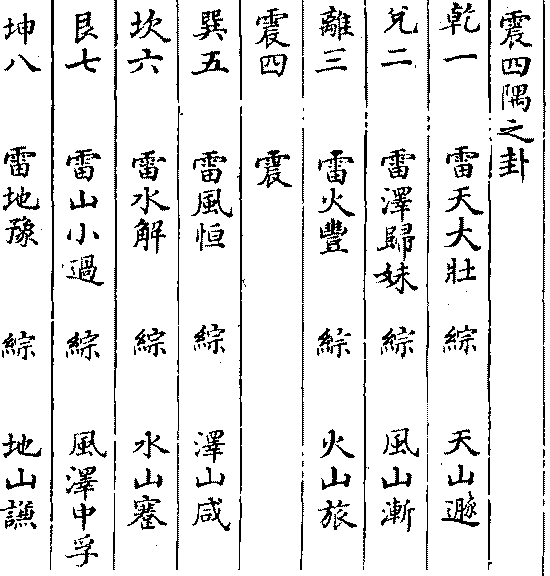 震四隅之卦
乾一 雷天大壯 綜 天山遯
兌二 雷澤歸妹 綜 風山漸
離三 雷火豐 綜 火山旅
震四 震
巽五 雷風恒 綜 澤山咸
坎六 雷水解 綜 水山蹇
艮七 雷山小過 綜 風澤中孚
坤八 雷地豫 綜 地山謙